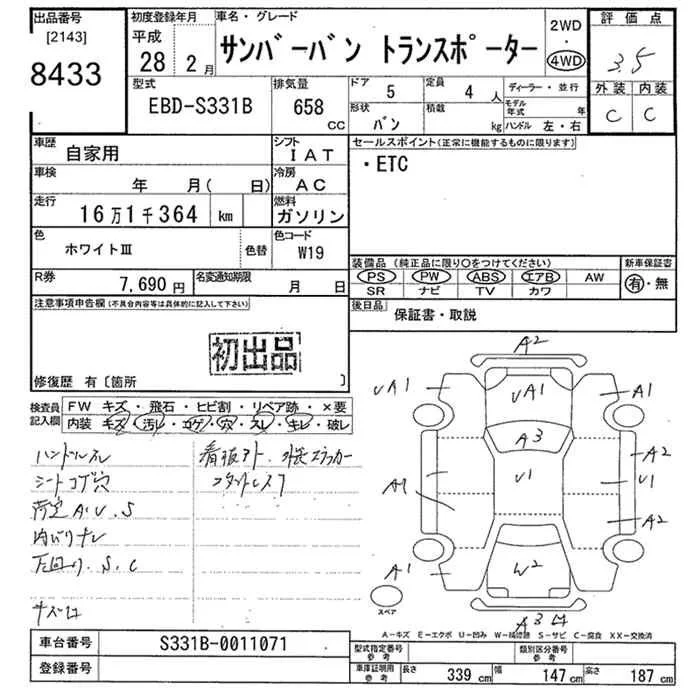 出品番号
[2143]
8433
初度登録年月
平成
28年 2月
車名・グレード
サンバーバン トランスポーター
2WD
・
4WD
評価点
3.5
外装 内装
C C
型式
EBD-S331B
排気量
658
CC
ドア
5
定員
4 人
ディーラー・並行
形状
バン
積数
kg
モデル年式 年
ハンドル 左・右
車歴
自家用
シフト
IAT
車検
年 月( 日)
冷房
AC
走行
16万1千364 km
燃料
ガソリン
色
ホワイトⅢ
色替
色コード
W19
R券
7,690 円
名変通知期限
月 日
セールスポイント(正常に機能するものに限ります)
・ETC
装備品 (純正品に限り○をつけてください)
PS PW ABS エアB AW
SR ナビ TV カワ
新車保証書
有・無
後日品
保証書・取説
注意事項申告欄(不具合内容等は具体的に記入して下さい)
初出品
修復歴 有〔箇所 〕
検査員
記入欄
FW キズ・飛石・ヒビ割・リペア跡・×要
内装 キズ・汚レ・コゲ・穴・スレ・キレ・破レ
ハンドルスレ
シートコゲ穴
荷室A.U.S
内バリナシ
下回り.S.C
看板アト
A2
UA1
UA1
A1
A3
A2
U1
U1
A1
A2
A1
W2
A3
スペア
A-キズ E-エクボ U-凹み W-補修跡 S-サビ C-腐食 XX-交換済
車台番号
S331B-0011071
登録番号
型式指定番号
参考
類別区分番号
参考
車庫証明用
参考
長さ
339 cm
幅
147 cm
高さ
187 cm